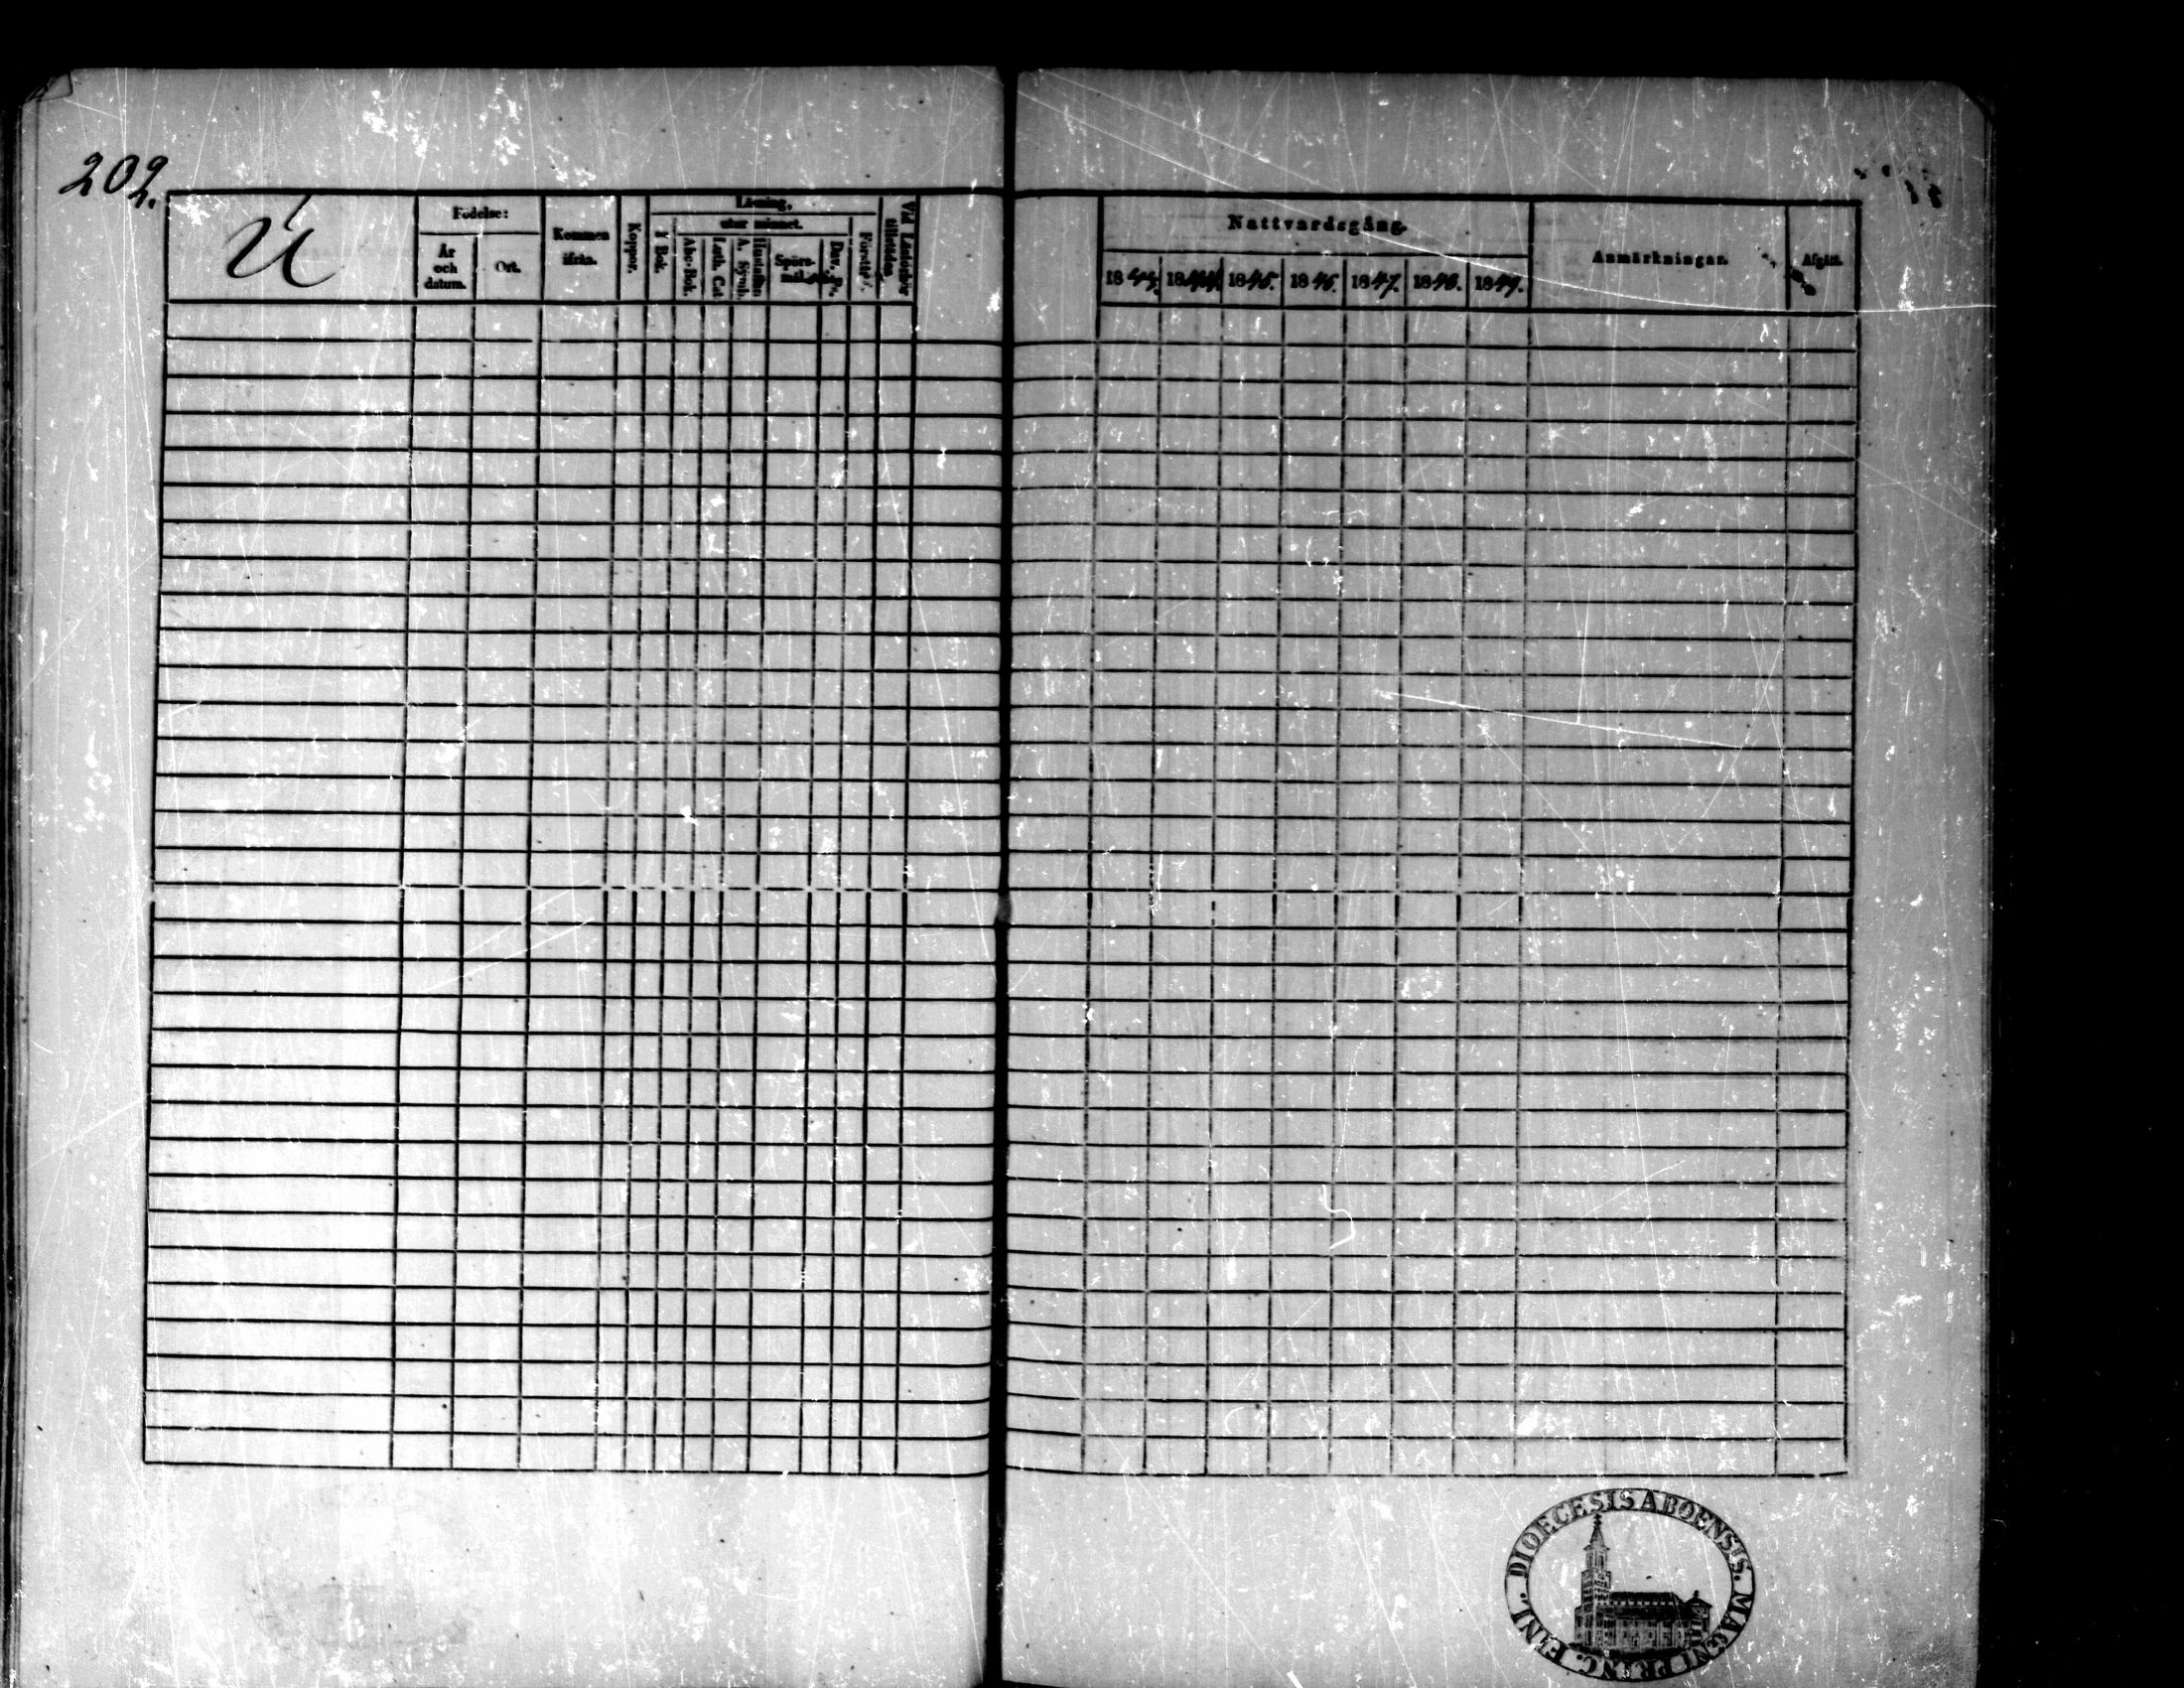 202.
U
Födelse:
År och datum.
Ort.
Kommen ifrån.
Koppor.
Läsning,
utur minnet.
i Bok.
Abc-Bok.
Luth. Cat
Hustaflan
A. Symb.
Spörs-
mål.
Dav. Ps.
Förstår
Vid Läseförhör tillstädes
Nattvardsgång.
1843.
1844.
1845.
1846.
1847.
1848.
1849.
Anmärkningar.
Afgått.
DIOECESIS ABOENSIS. MAGNI PRINC. FINL.